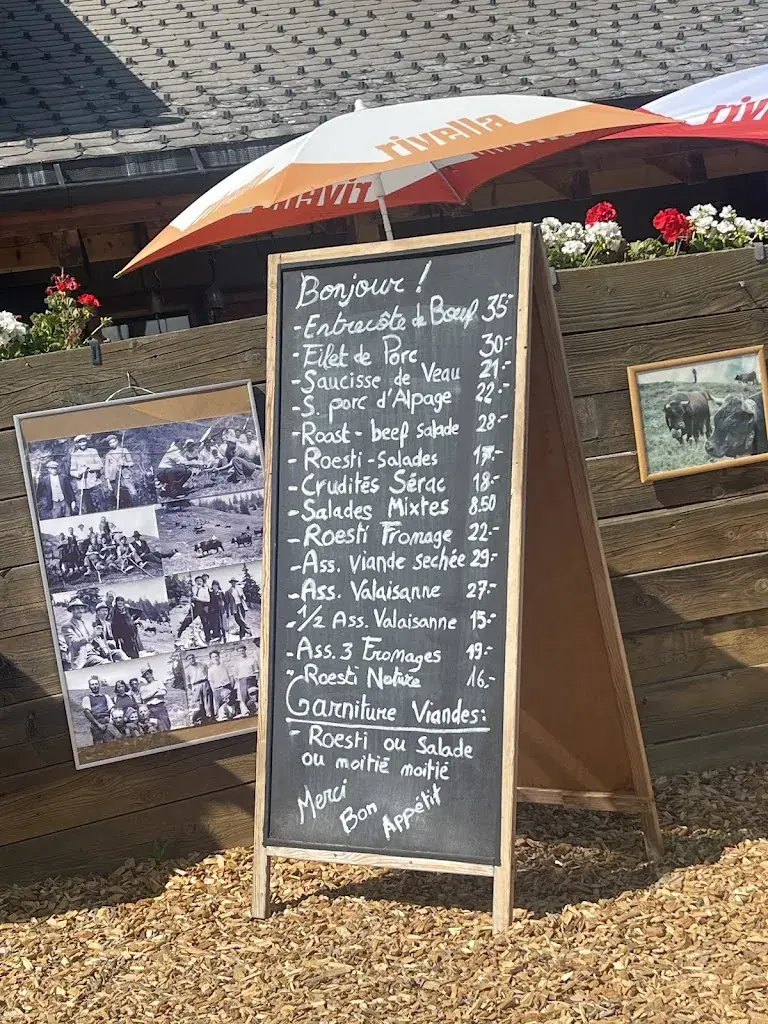 rivella
rivella
riv
Bonjour !
- Entrecôte de Boeuf 35.-
- Filet de Porc 30.-
- Saucisse de Veau 21.-
- S. porc d'Alpage 22.-
- Roast-beef salade 28.-
- Roesti-Salades 17.-
- Crudités Sérac 18.-
- Salades Mixtes 8.50
- Roesti Fromage 22.-
- Ass. Viande sechée 29.-
- Ass. Valaisanne 27.-
- 1/2 Ass. Valaisanne 15.-
- Ass. 3 Fromages 19.-
- Roesti Nature 16.-
Garniture Viandes:
- Roesti ou Salade
ou moitié moitié
Merci
Bon
Appétit